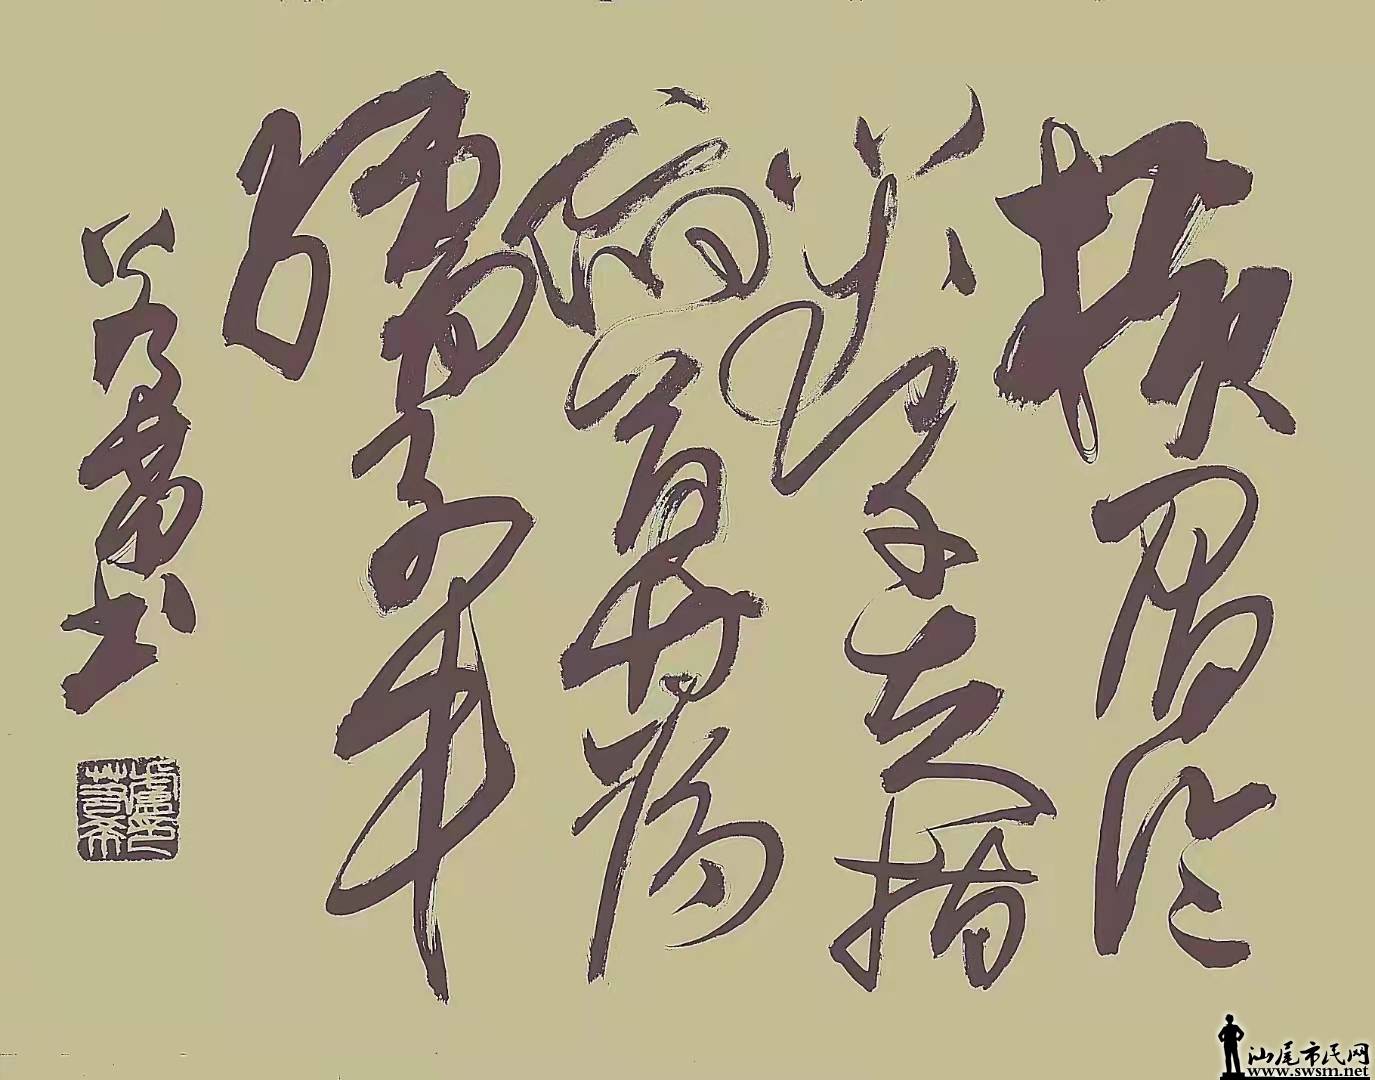 横眉冷
對千夫指
俯首甘為
孺子牛
书
汕尾市民网
www.swsm.net